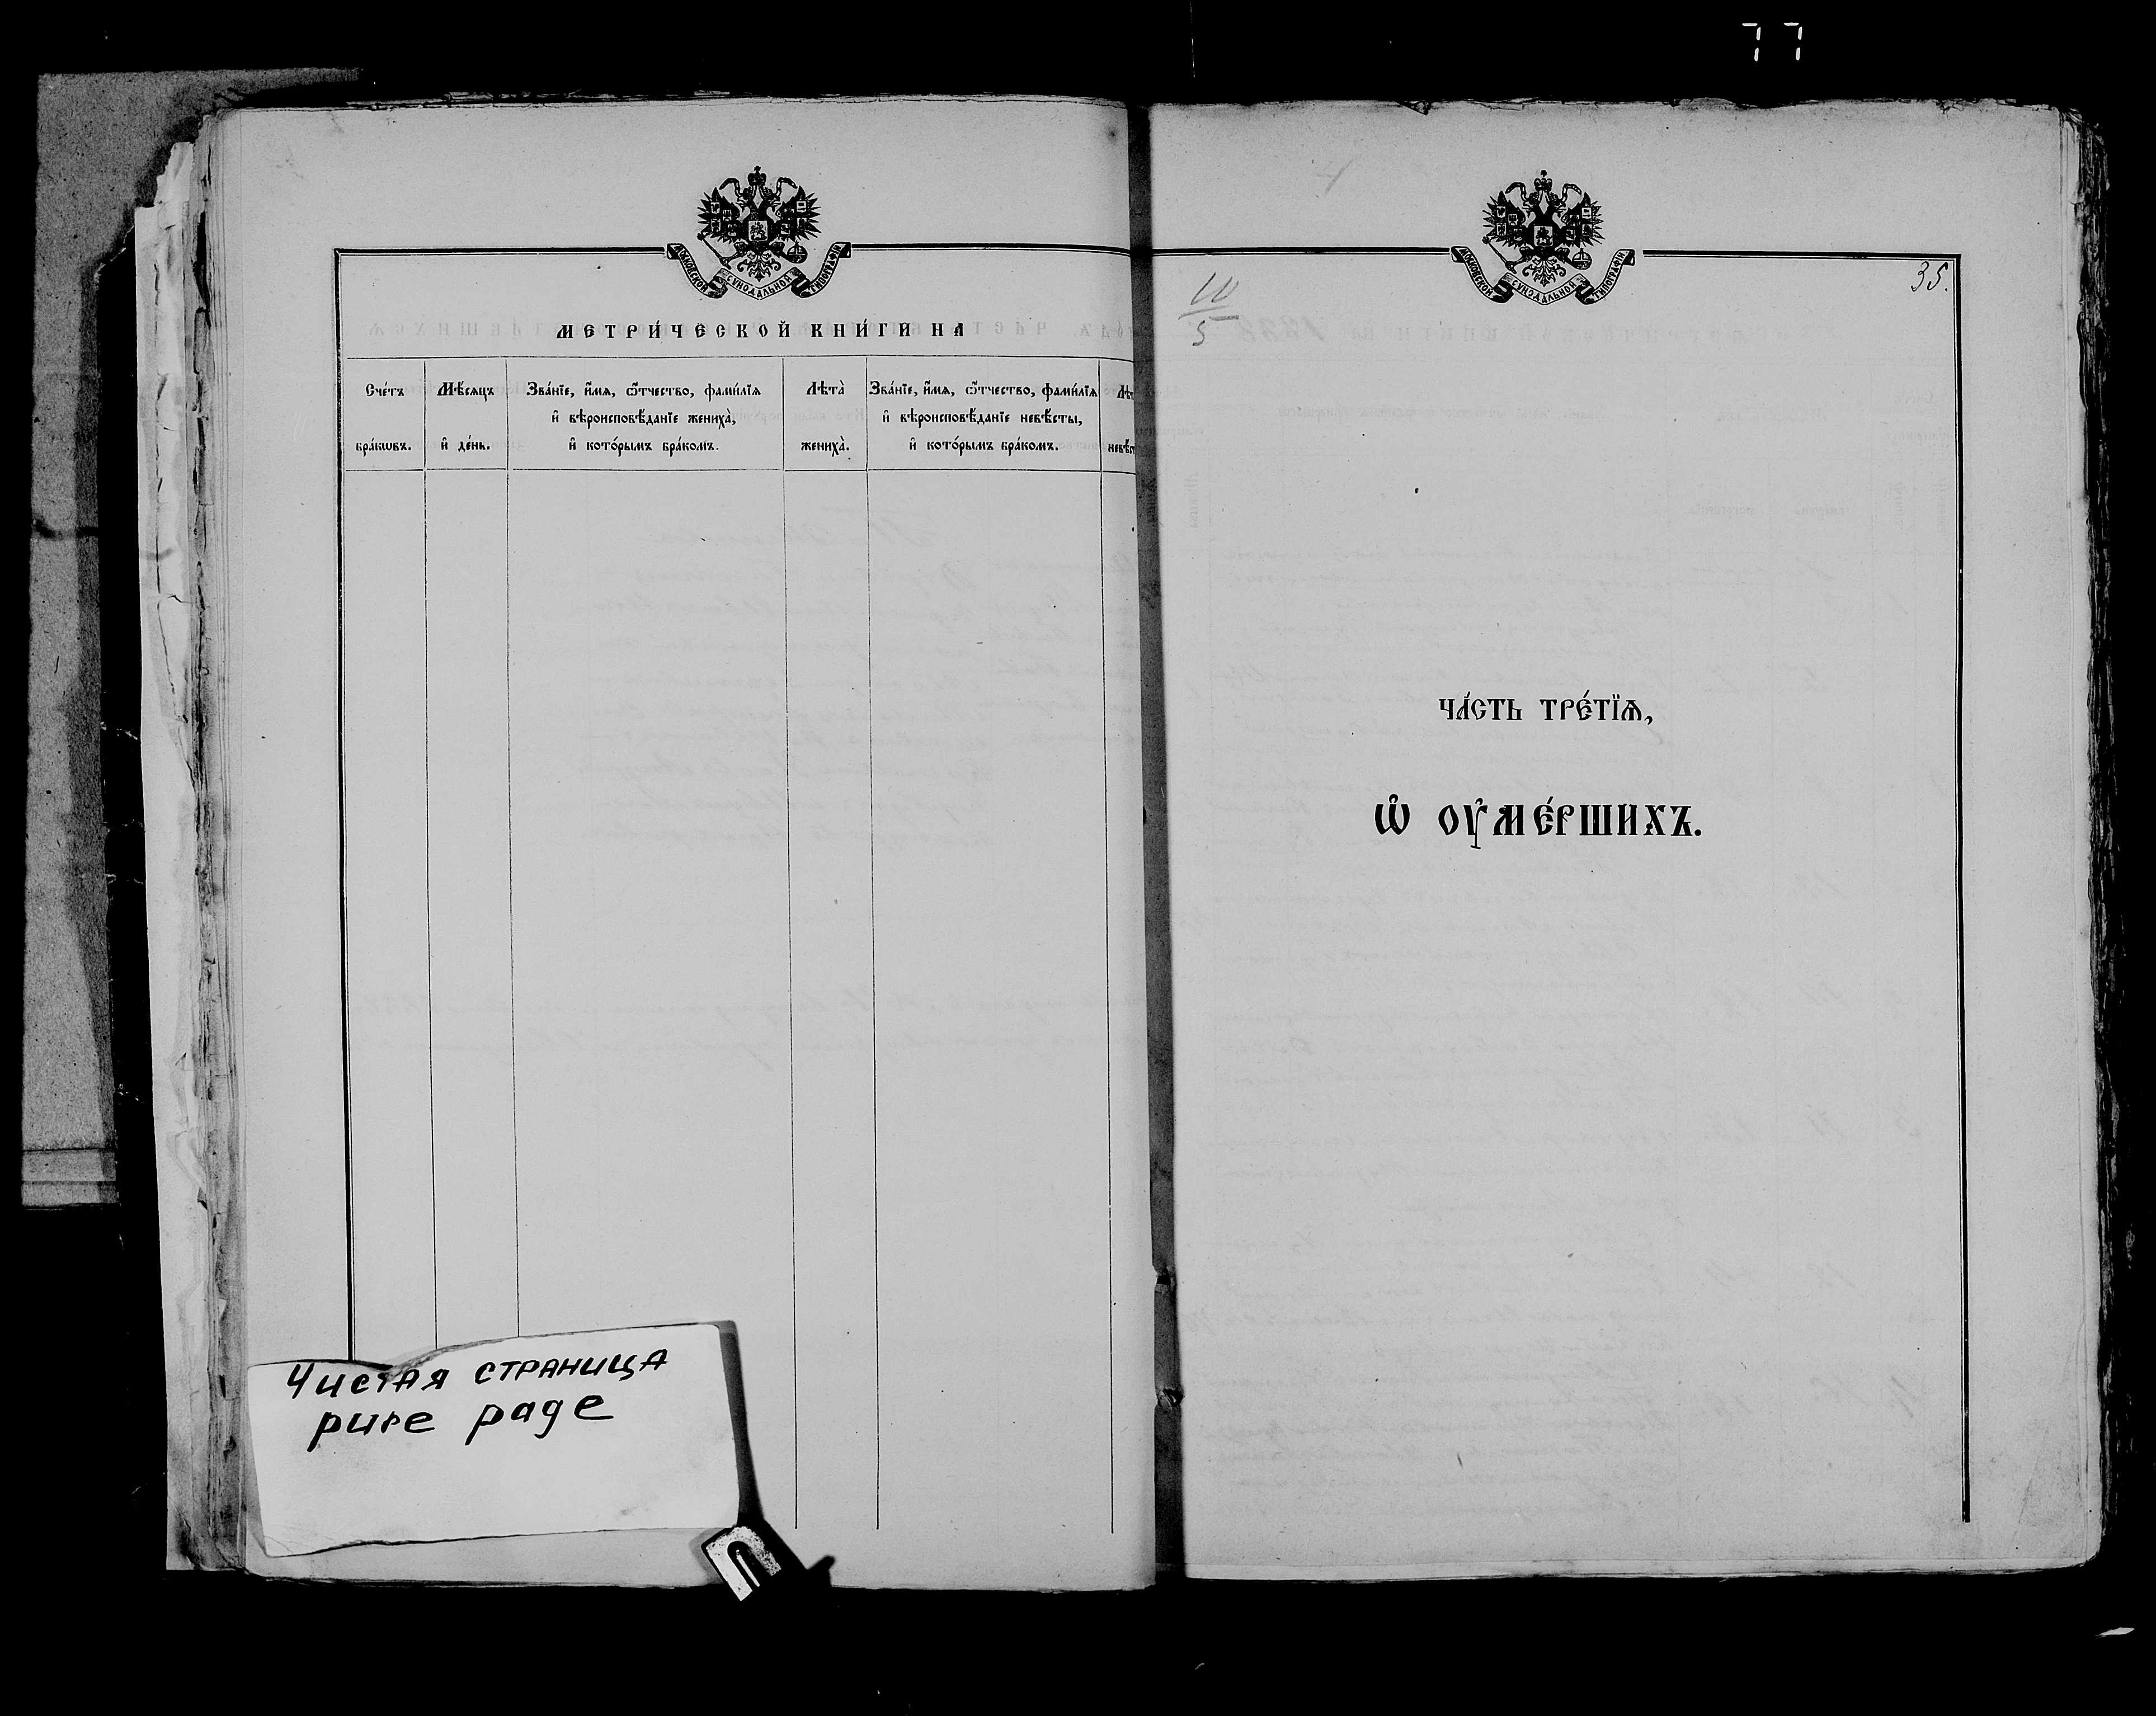 77
МОСКОВСКОЙ СѴНОДАЛЬНОЙ ТИПОГРАФІИ
МЕТРИ́ЧЕСКОЙ КНИ́ГИ НА
Сче́тъ бра́кѡвъ.
Мѣ́сяцъ и҆ де́нь.
Зва́нїе, и҆́мя, ѻ҆́тчество, фами́лїя
и҆ вѣроисповѣ́данїе жениха̀,
и҆ кото́рымъ бра́комъ.
Лѣта̀ жениха̀.
Зва́нїе, и҆́мя, ѻ҆́тчество, фами́лїя
и҆ вѣроисповѣ́данїе невѣ́сты,
и҆ кото́рымъ бра́комъ.
Чистая страница
pure page
МОСКОВСКОЙ СѴНОДАЛЬНОЙ ТИПОГРАФІИ
35.
5
ЧА́СТЬ ТРЕ́ТЇѦ,
Ѡ҆ ОУ҆МЕ́РШИХЪ.